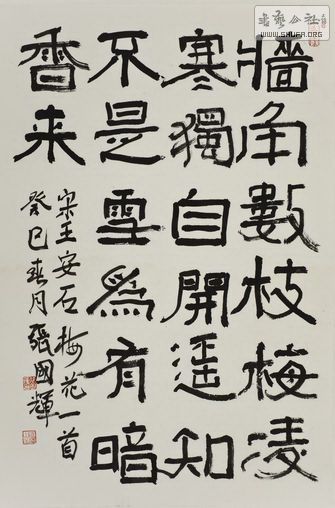 牆角數枝梅凌
寒獨自開遥知
不是雪爲有暗
香来
宋王安石梅花一首
癸巳春月張國輝
WWW.SHUFA.ORG